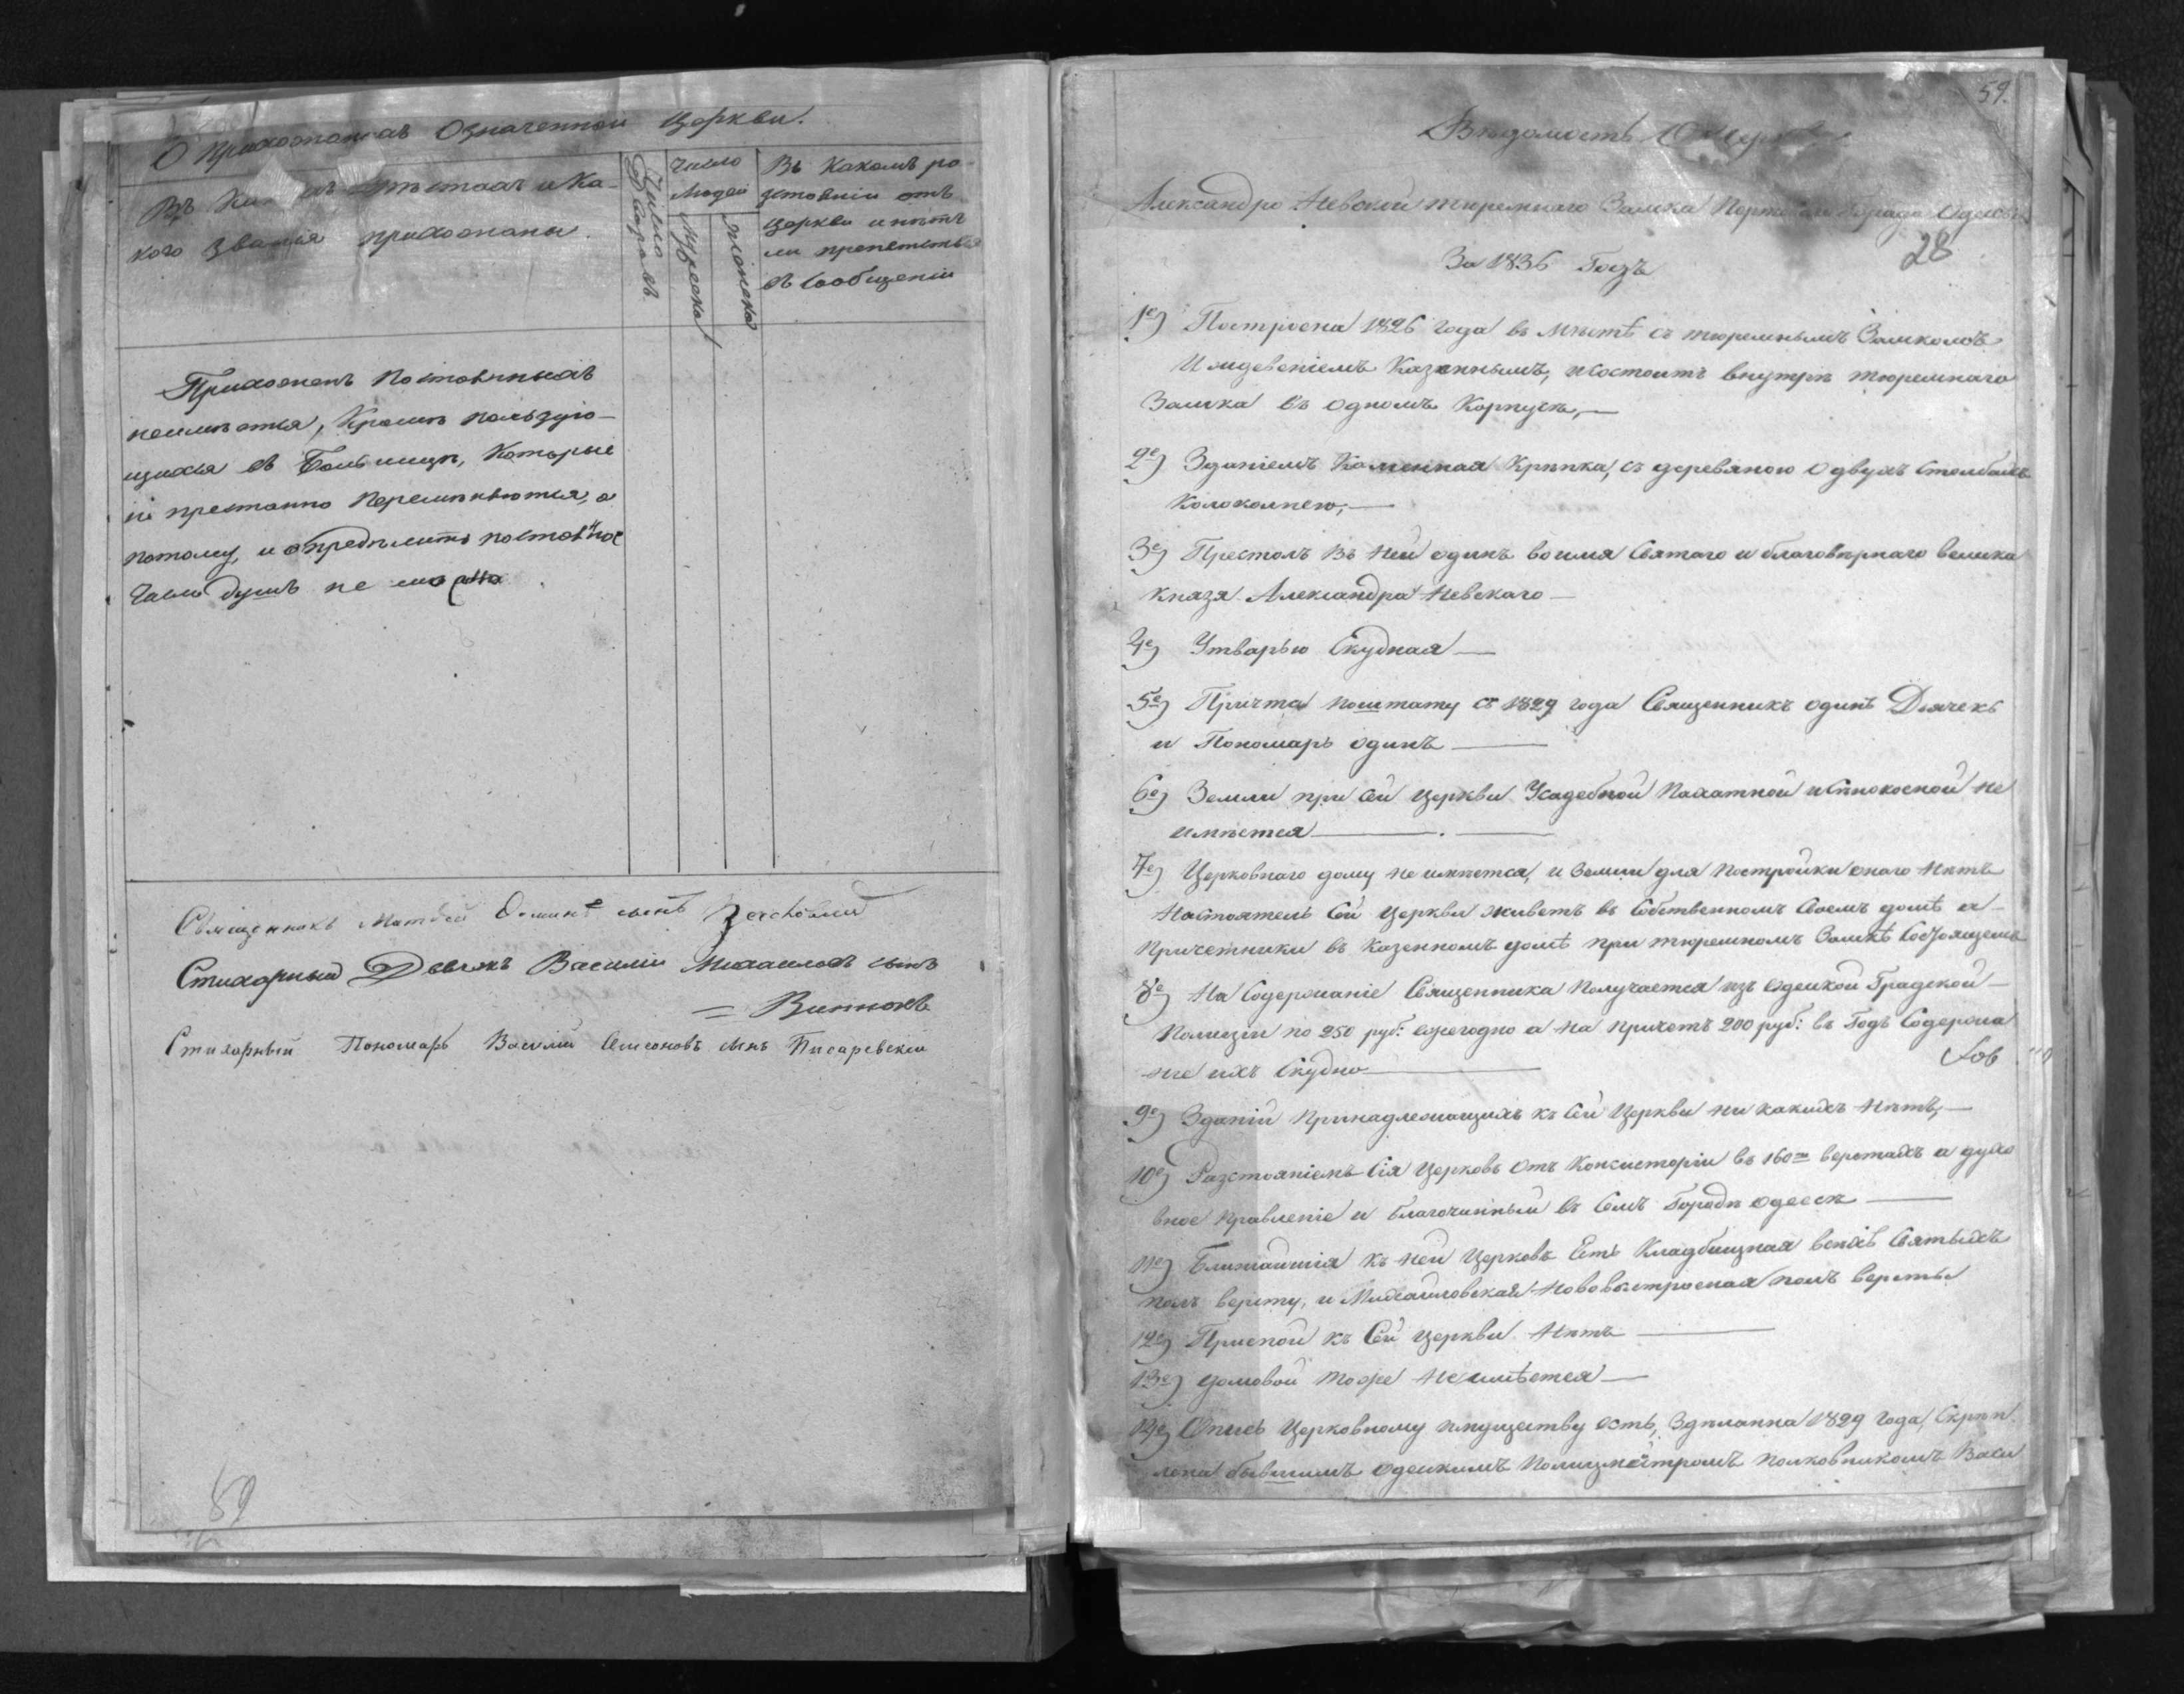 О прихожанахъ Означенной Церкви.
мѣстахъ и Ка-
кого званія прихожаны.
Число Дворовъ.
Число Людей
Мужеска
Женска
Въ Какомъ ра-
зстояніи отъ
Церкви и нѣтъ
ли препятствія
въ сообщеніи
Прихожанъ постоянныхъ
неимѣется, Кромѣ пользую-
щихся въ Больницѣ, Которые
не престанно перемѣняются, а
потому, и опредѣлить постоянное
Число душъ не можно
Священникъ Матвей сынъ
Стихарный Дьячекъ Василій Михаиловъ сынъ
Стихарный Пономарь Василій сынъ Писаревскій
59
59.
Вѣдомость О Церкви
Александро Невской тюремнаго Замка Города Одессы
28
За 1836 Годъ
1е) Построена 1826 года въ мѣстѣ съ тюремнымъ Замкомъ
Иждевеніемъ Казеннымъ, и состоитъ внутри тюремнаго
Замка въ одномъ Корпусѣ,—
2е) Зданіемъ Каменная Крѣпка, съ деревяною о двухъ столбахъ
Колокольнею,—
3е) Престолъ въ ней одинъ во имя Святаго и благовѣрнаго велика
князя Александра Невскаго—
4е) Утварью Скудная—
5е) Причта по штату съ 1829 года Священникъ одинъ Дьячекъ
и Пономарь одинъ—
6е) Земли при сей церкви Усадебной Пахатной и Сѣнокосной не
имѣется—
7е) Церковнаго дому не имѣется, и Земли для постройки онаго нѣтъ
Настоятель Сей Церкви живетъ въ Собственномъ своемъ домѣ а
причетники въ казенномъ домѣ при тюремномъ Замкѣ Состоящемъ
8е) На Содержаніе Священника Получается изъ Одеской Градской
Полиціи по 250 руб: ежегодно а на причетъ 200 руб: въ Годъ Содержа
ніе ихъ Скудно—
9е) Зданій принадлежащихъ къ Сей Церкви ни какихъ нѣтъ,—
10е) Разстояніемъ Сія Церковь отъ Консисторіи въ 160 верстахъ а духо
вное правленіе и благочинный въ семъ Городѣ Одессѣ—
11е) Ближайшія къ ней Церковь Есть Кладбищная всѣхъ Святыхъ
полъ версту, и Михаиловская Нововыстроеная полъ версты
12е) Приписной къ Сей церкви Нѣтъ—
13е) домовой тоже неимѣется—
14е) Опись Церковному имуществу есть, Здѣланна 1829 года, Скрѣп
лена бывшимъ одескимъ Полицмейстромъ полковникомъ Васи